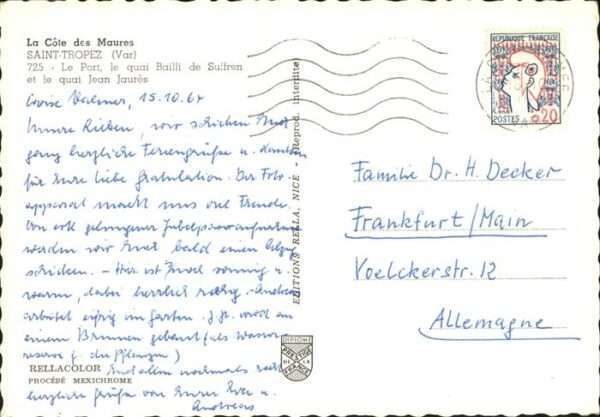 La Côte des Maures
SAINT-TROPEZ (Var)
725 - Le Port, le quai Bailli de Suffren
et le quai Jean Jaurès
15.10.64
Unsere Lieben, wir schicken Euch
ganz herzliche Feriengrüße u. danken
für Eure liebe Gratulation. Der Foto-
apparat macht uns viel Freude.
Von gelungener
werden wir Euch bald einen Abzug
schicken. — Hier ist sonnig u.
warm, dabei herrlich ruhig. Andreas
arbeitet eifrig im Garten. z.Zt. wird an
einem Brunnen gebaut (als Wasser-
reserve f. die Pflanzen)
Euch allen nochmals recht
herzliche Grüße von Eurer u.
Andreas
RELLACOLOR
PROCÉDÉ MEXICHROME
EDITIONS RELLA, NICE - Reprod. interdite
DIPLOME
PRESTIGE
FRANCE
REPUBLIQUE FRANÇAISE
POSTES 0,20
Familie Dr. H. Decker
Frankfurt/Main
Voelckerstr. 12
Allemagne